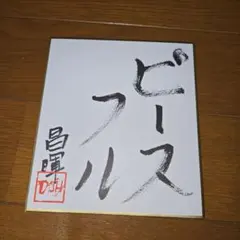 ピース
フル
昌暉